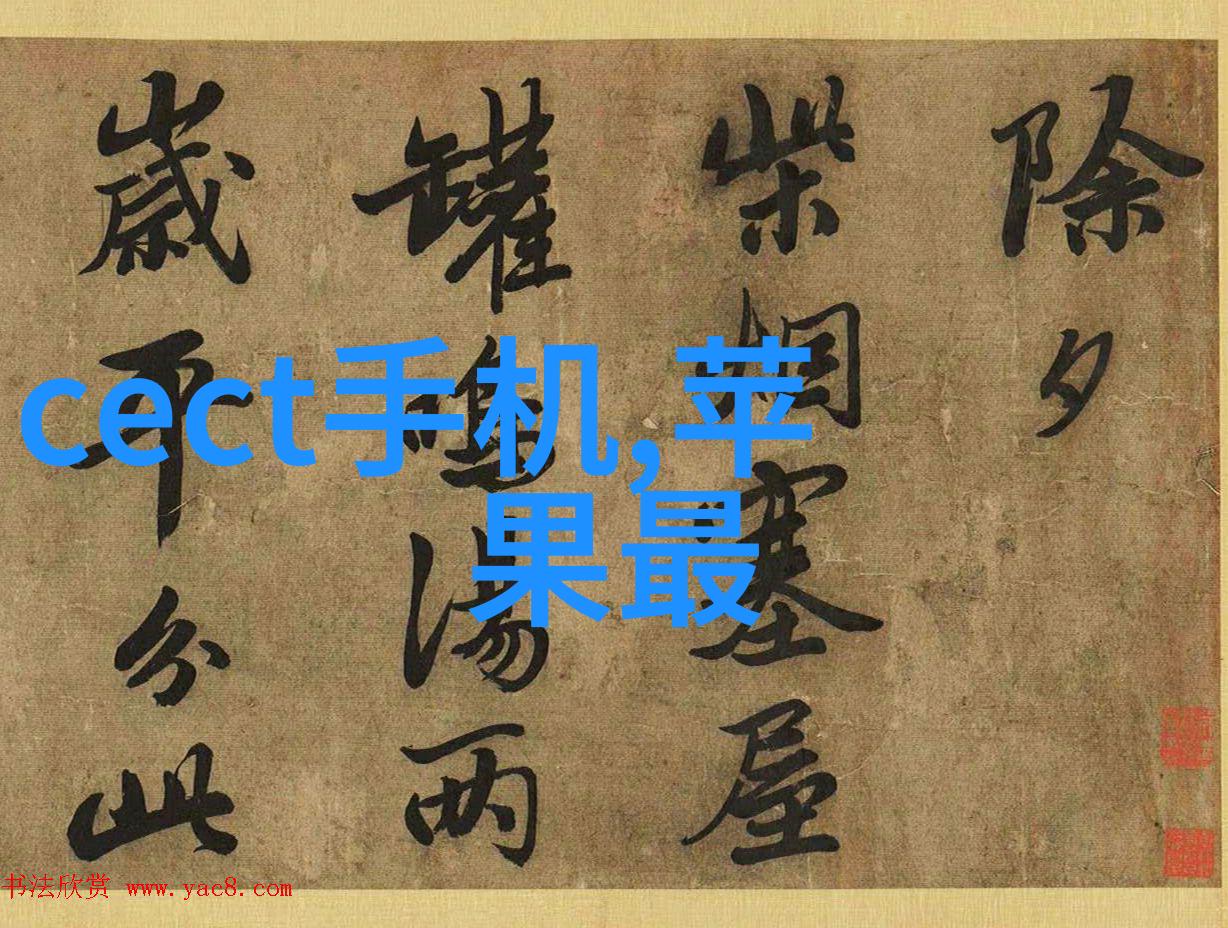 除夕
柴烟塞屋
罐鳴湯兩
歲平分此
cect手机,苹
果最
书法欣赏 www.yac8.com